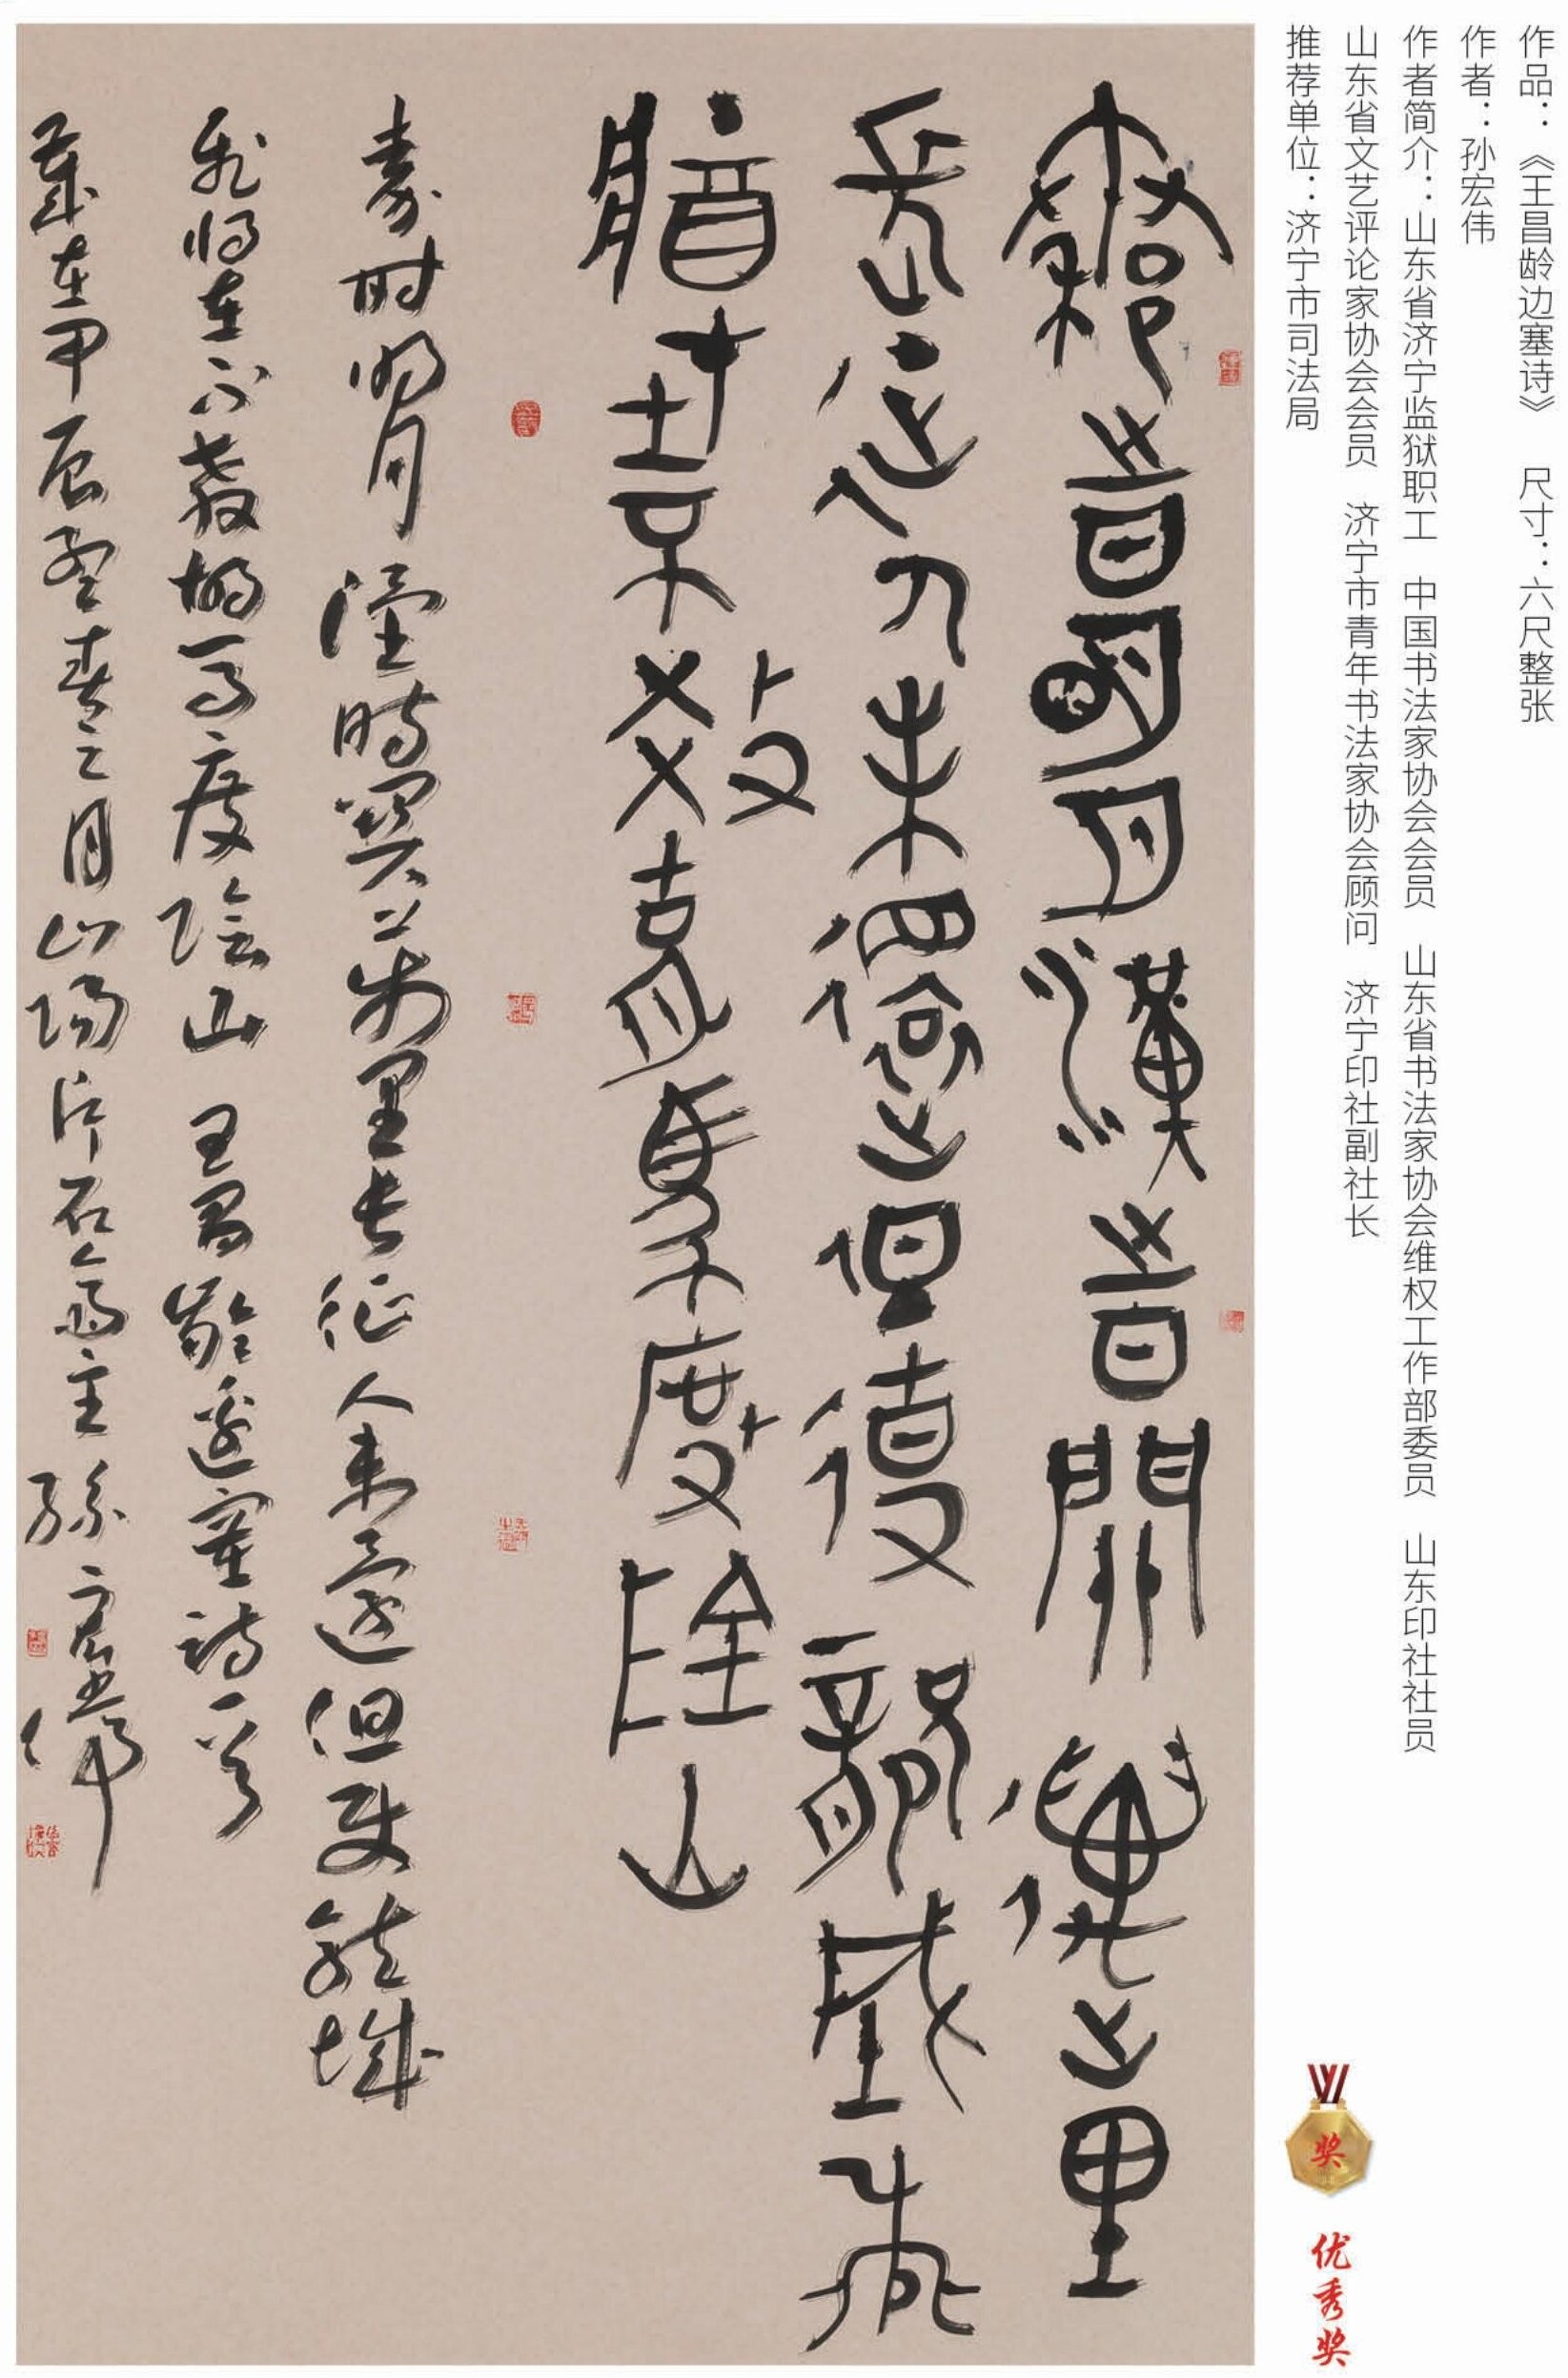 作品：《王昌龄边塞诗》　尺寸：六尺整张
作者：孙宏伟
作者简介：山东省济宁监狱职工　中国书法家协会会员　山东省书法家协会维权工作部委员　山东印社社员
山东省文艺评论家协会会员　济宁市青年书法家协会顾问　济宁印社副社长
推荐单位：济宁市司法局
奖
优秀奖
秦時明月漢時關萬里
長征人未還但使龍城飛
將在不教胡馬度陰山
秦时明月漢時關萬里長征人未還但使龍城
飛将在不教胡馬度陰山王昌齡邊塞詩一首
歲在甲辰孟春之月山陽片石齋主孫宏偉